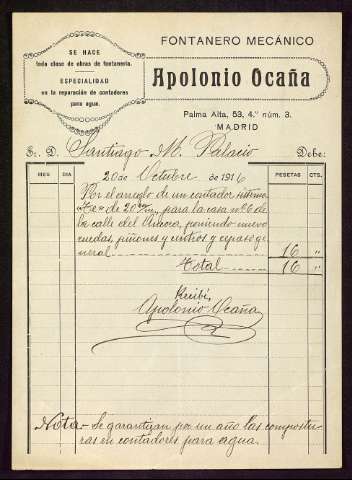 FONTANERO MECÁNICO
SE HACE
toda clase de obras de fontanería.
ESPECIALIDAD
en la reparación de contadores
para agua.
Apolonio Ocaña
Palma Alta, 53, 4.º núm. 3.
MADRID
Sr. D. Santiago M. Palacio Debe:
MES DIA PESETAS CTS.
20 de Octubre de 1916
Por el arreglo de un contador sistema
de 20 m/m para la casa nº 6 de
la calle del poniendo nuevo
ruedas, piñones y centros y repaso ge
neral 16 "
Total 16 "
Recibí,
Apolonio Ocaña
Nota.- Se garantizan por un año las compostu-
ras en contadores para agua.